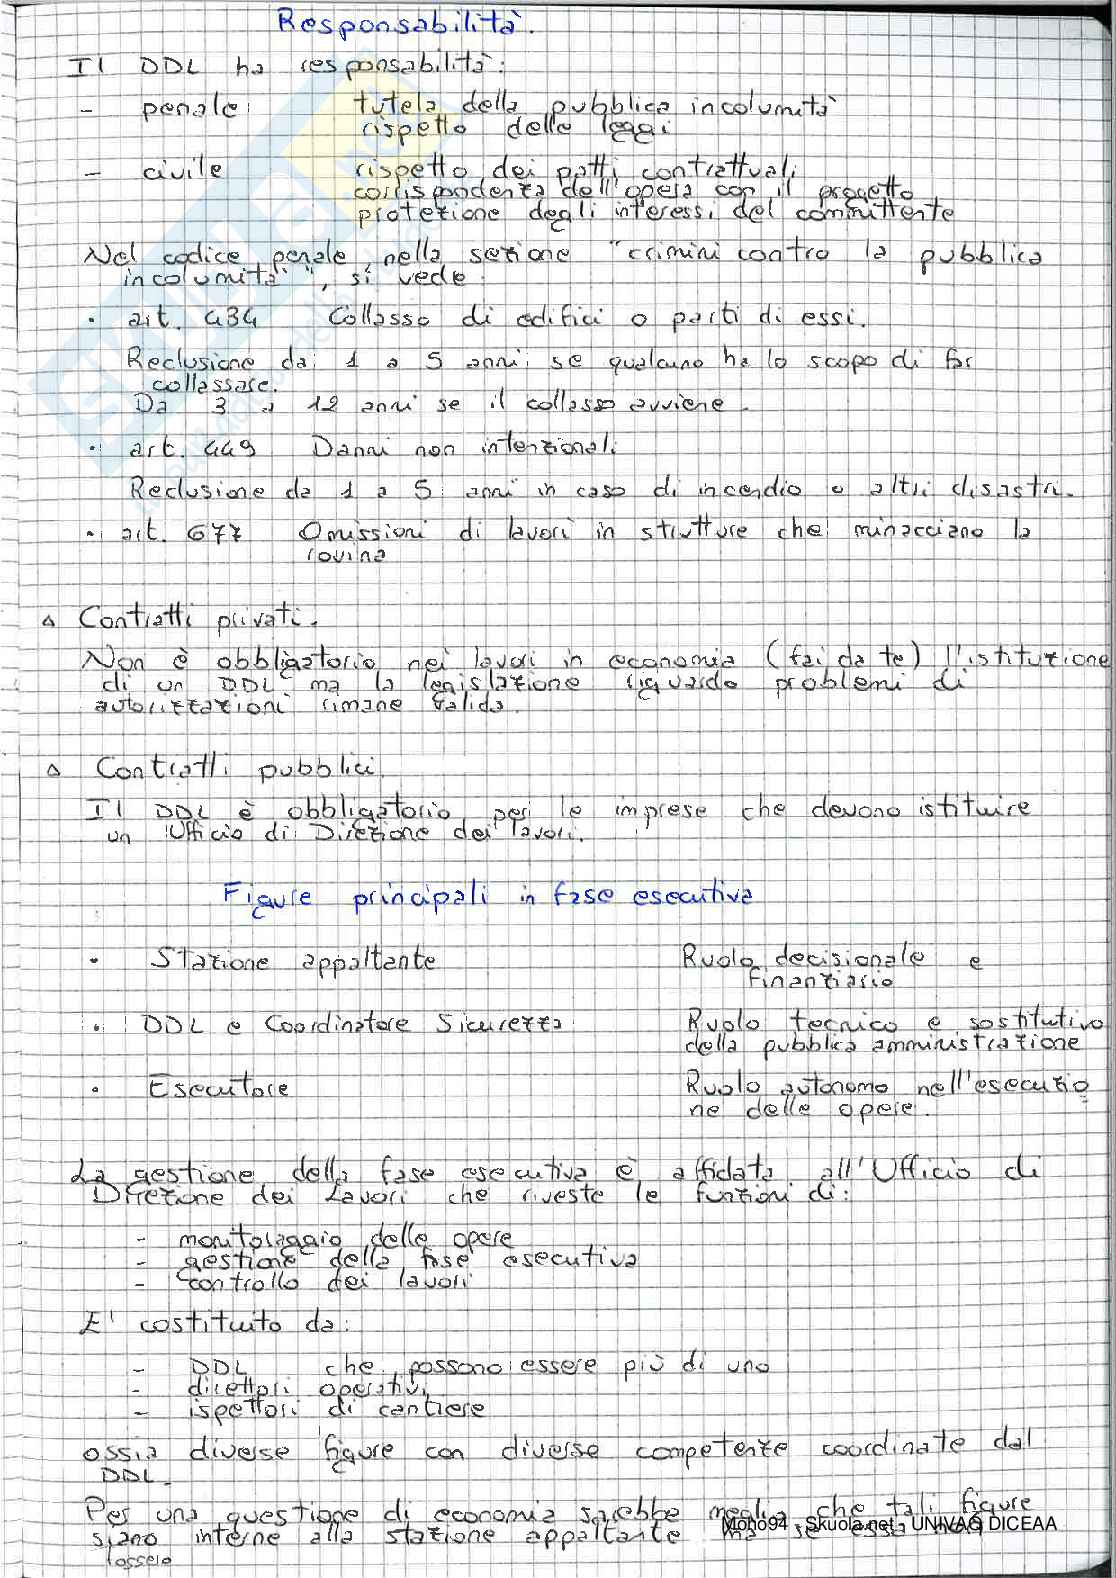 Responsabilità.
Il DDL ha responsabilità:
- penale: tutela della pubblica incolumità
rispetto delle leggi
- civile rispetto dei patti contrattuali
corrispondenza dell'opera con il progetto
protezione degli interessi del committente
Nel codice penale, nella sezione "crimini contro la pubblica
incolumità", si vede:
• art. 434 Collasso di edifici o parti di essi.
Reclusione da 1 a 5 anni se qualcuno ha lo scopo di far
collassare.
Da 3 a 12 anni se il collasso avviene.
• art. 449 Danni non intenzionali
Reclusione da 1 a 5 anni in caso di incendio o altri disastri.
• art. 677 Omissioni di lavori in strutture che minacciano la
rovina
△ Contratti privati.
Non è obbligatorio nei lavori in economia (fai da te) l'istituzione
di un DDL ma la legislazione riguardo problemi di
autorizzazioni rimane valida.
△ Contratti pubblici
Il DDL è obbligatorio per le imprese che devono istituire
un Ufficio di Direzione dei lavori.
Figure principali in fase esecutiva
• Stazione appaltante Ruolo decisionale e
finanziario
• DDL e Coordinatore Sicurezza Ruolo tecnico e sostitutivo
della pubblica amministrazione
• Esecutore Ruolo autonomo nell'esecuzio
ne delle opere.
La gestione della fase esecutiva è affidata all'Ufficio di
Direzione dei Lavori che riveste le funzioni di:
- monitoraggio delle opere
- gestione della fase esecutiva
- controllo dei lavori
E' costituito da:
- DDL che possono essere più di uno
- direttori operativi
- ispettori di cantiere
ossia diverse figure con diverse competenze coordinate dal
DDL.
Per una questione di economia sarebbe meglio che tali figure
siano interne alla stazione appaltante
Moho94 - Skuola.net - UNIVAQ DICEAA